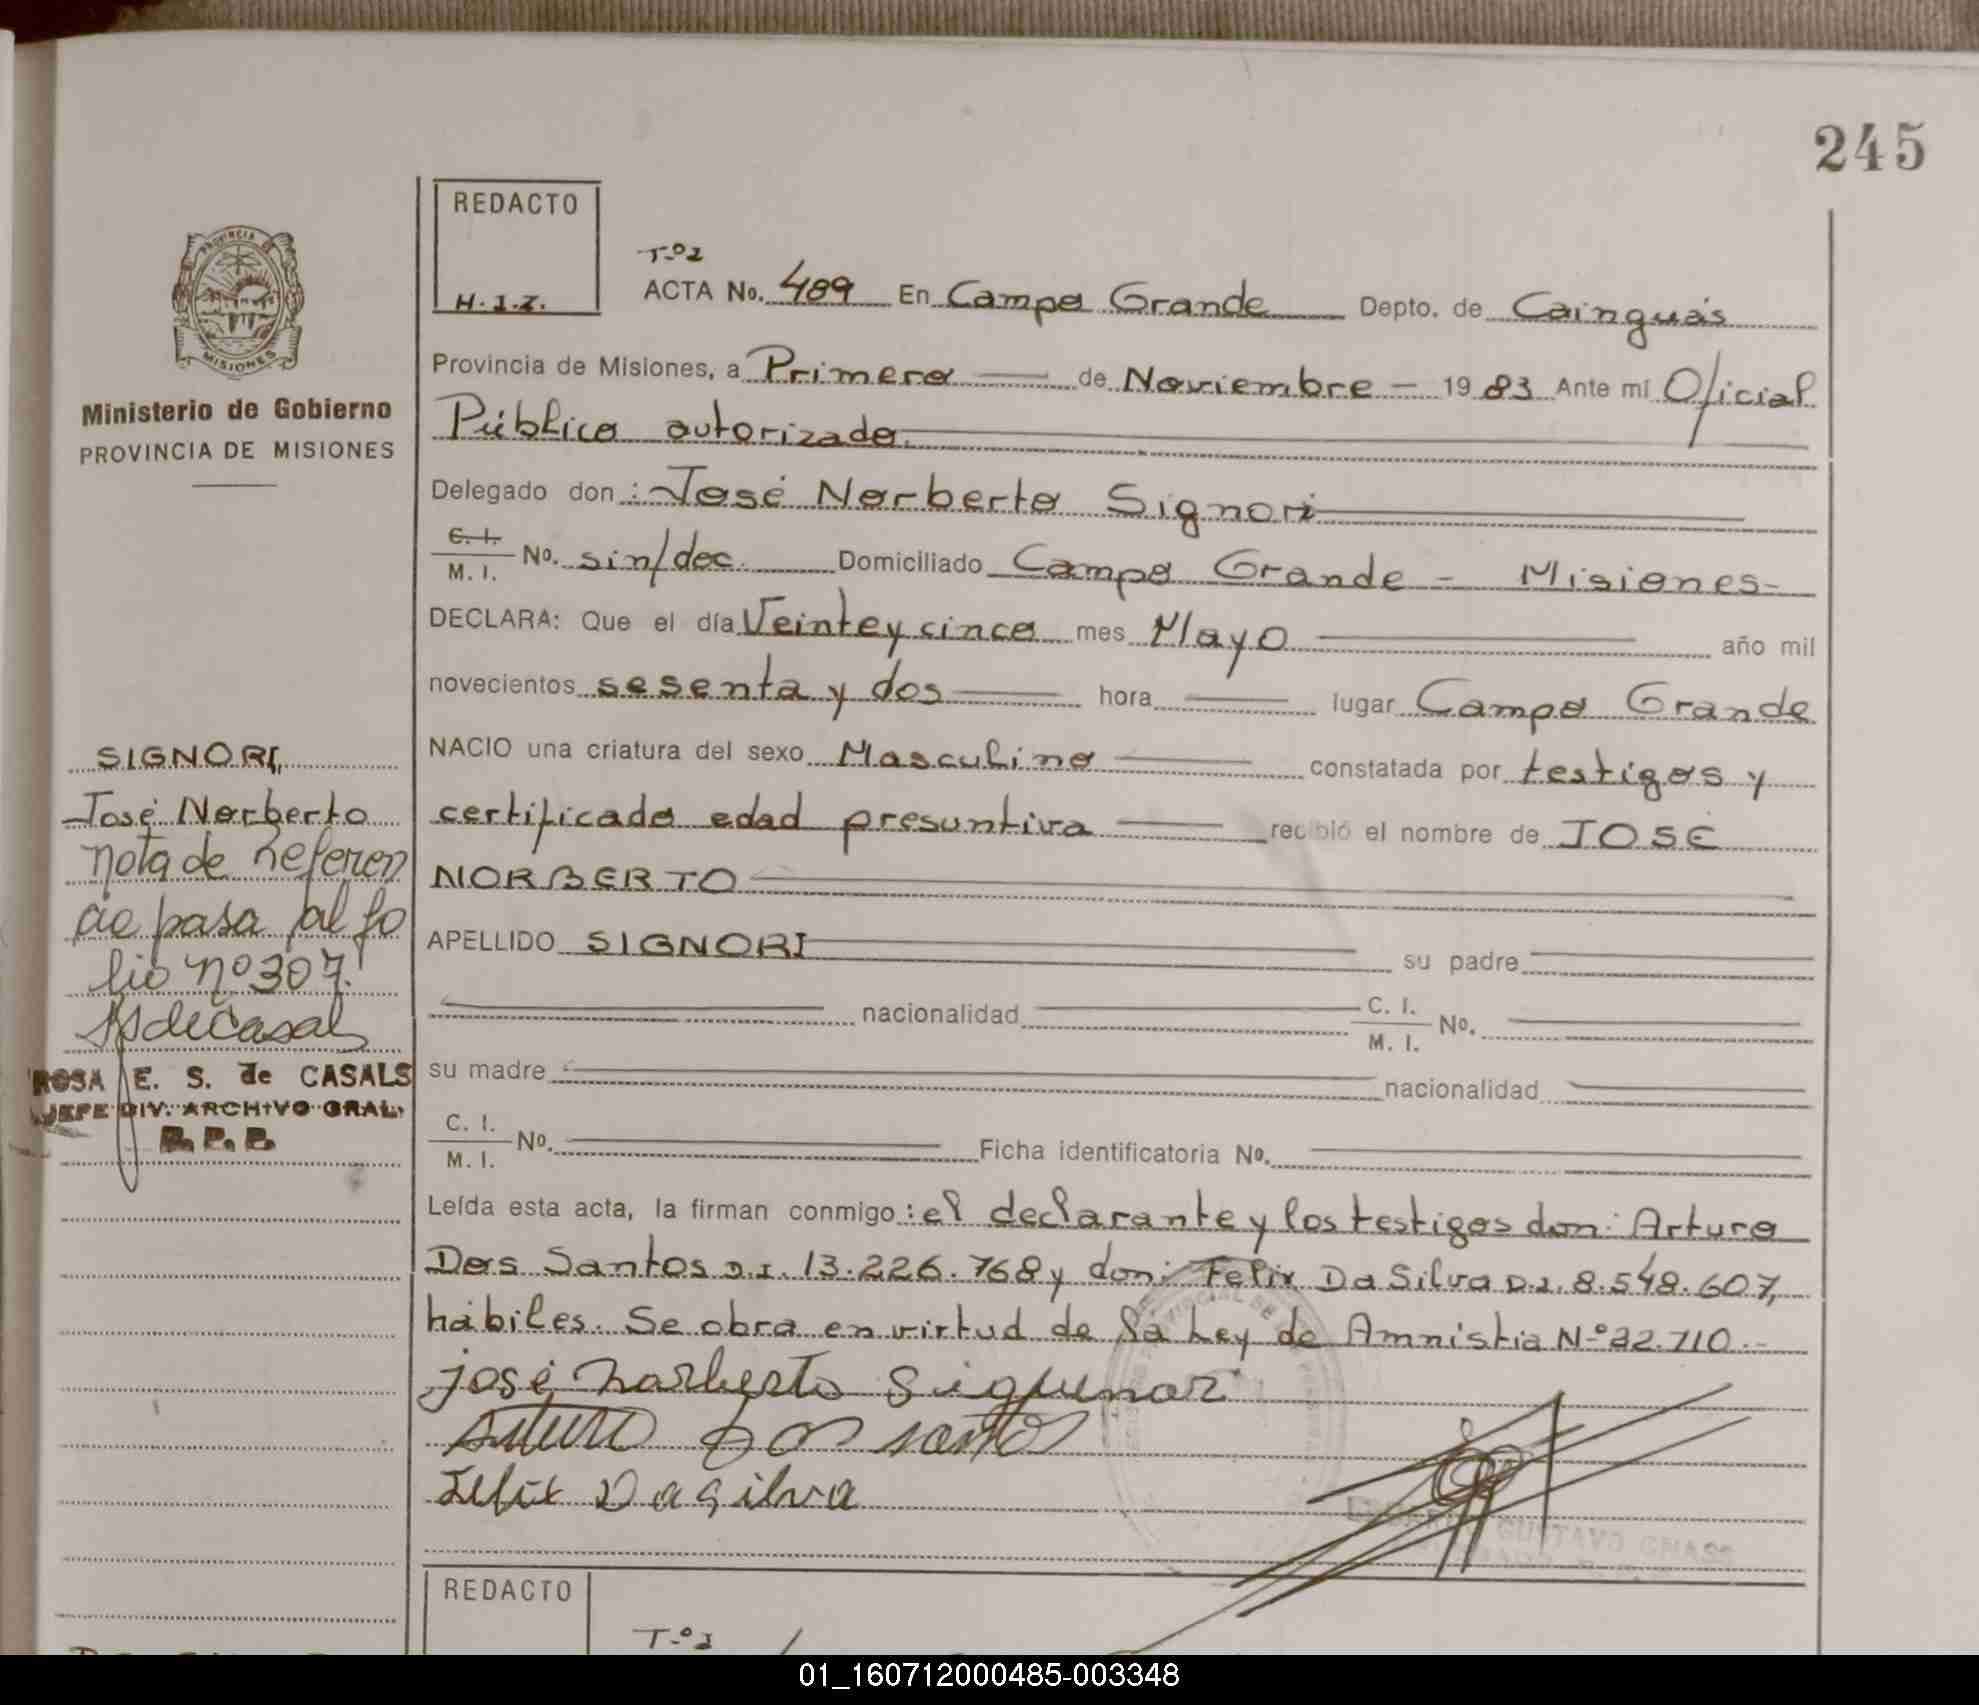 245
REDACTO
H.I.Z.
T.º2
ACTA No. 489 En Campo Grande Depto. de Cainguás
Provincia de Misiones, a Primero de Noviembre - 1983 Ante mí Oficial
Público autorizado.
Delegado don: José Norberto Signori
C. I. M. I. No. sin/doc. Domiciliado Campo Grande - Misiones-
DECLARA: Que el día Veintey cinco mes Mayo año mil
novecientos sesenta y dos hora lugar Campo Grande
NACIO una criatura del sexo Masculino constatada por testigos y
certificado edad presuntiva recibió el nombre de JOSÉ
NORBERTO
APELLIDO SIGNORI su padre
nacionalidad C. I. M. I. No.
su madre nacionalidad
C. I. M. I. No. Ficha identificatoria No.
Leída esta acta, la firman conmigo: el declarante y los testigos don: Arturo
Dos Santos D.I. 13.226.768 y don: Felix Da Silva D.I. 8.548.607,
hábiles. Se obra en virtud de la Ley de Amnistia N.º 22.710.-
josé norberto
Arturo Dos santos
Felix Da silva
GUSTAVO
PROVINCIA DE
MISIONES
Ministerio de Gobierno
PROVINCIA DE MISIONES
SIGNORI,
José Norberto
Nota de Referen
cia pasa al fo
lio nº 307.
RSdeCasals
ROSA E. S. de CASALS
JEFE DIV. ARCHIVO GRAL.
R. P. P.
REDACTO
T.º2
01_160712000485-003348